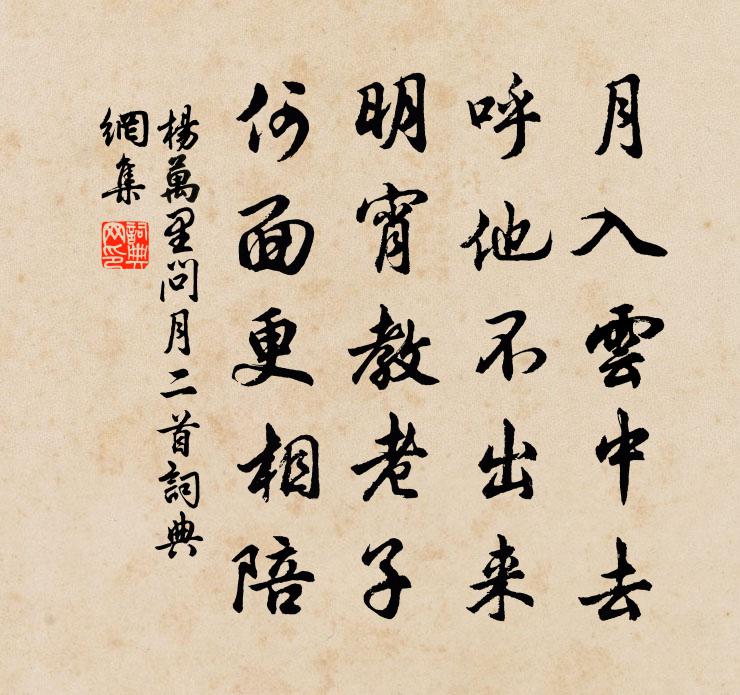 月入雲中去
呼他不出来
明宵教老子
何面更相陪
楊萬里問月二首詞典
網集
詞典
网印